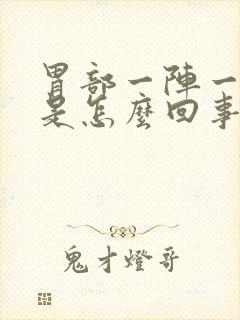 胃部一陣一
是怎麼回事
鬼才燈哥